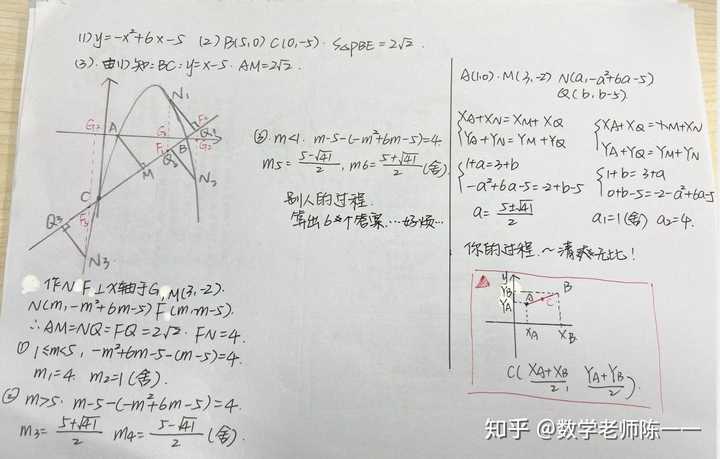 (1) y=-x²+6x-5 (2) B(5,0) C(0,-5). S△PBE=2√2.
(3). 由(1)知: BC: y=x-5. AM=2√2.
N₁
G₃
A
G₁
F₂
Q₁
B
G₂
F₁
Q₂
M
N₂
C
Q₃
F₃
N₃
作NF⊥X轴于G, M(3,-2).
N(m,-m²+6m-5) F(m,m-5).
∴AM=NQ=FQ=2√2. FN=4.
① 1≤m<5, -m²+6m-5-(m-5)=4.
m₁=4. m₂=1(舍).
② m>5. m-5-(-m²+6m-5)=4.
m₃=(5+√41)/2 m₄=(5-√41)/2 (舍).
③ m<1. m-5-(-m²+6m-5)=4
m₅=(5-√41)/2, m₆=(5+√41)/2 (舍)
别人的过程.
算出6个答案...好烦...
A(1,0). M(3,-2) N(a,-a²+6a-5)
Q(b,b-5).
{XA+XN=XM+XQ
YA+YN=YM+YQ
{1+a=3+b
-a²+6a-5=-2+b-5
a=(5±√41)/2
{XA+XQ=XM+XN
YA+YQ=YM+YN
{1+b=3+a
0+b-5=-2-a²+6a-5
a₁=1(舍) a₂=4.
你的过程.~清爽无比!
y
B
YB
A
C
YA
XA
XB
C((XA+XB)/2, (YA+YB)/2).
知乎 @数学老师陈一一